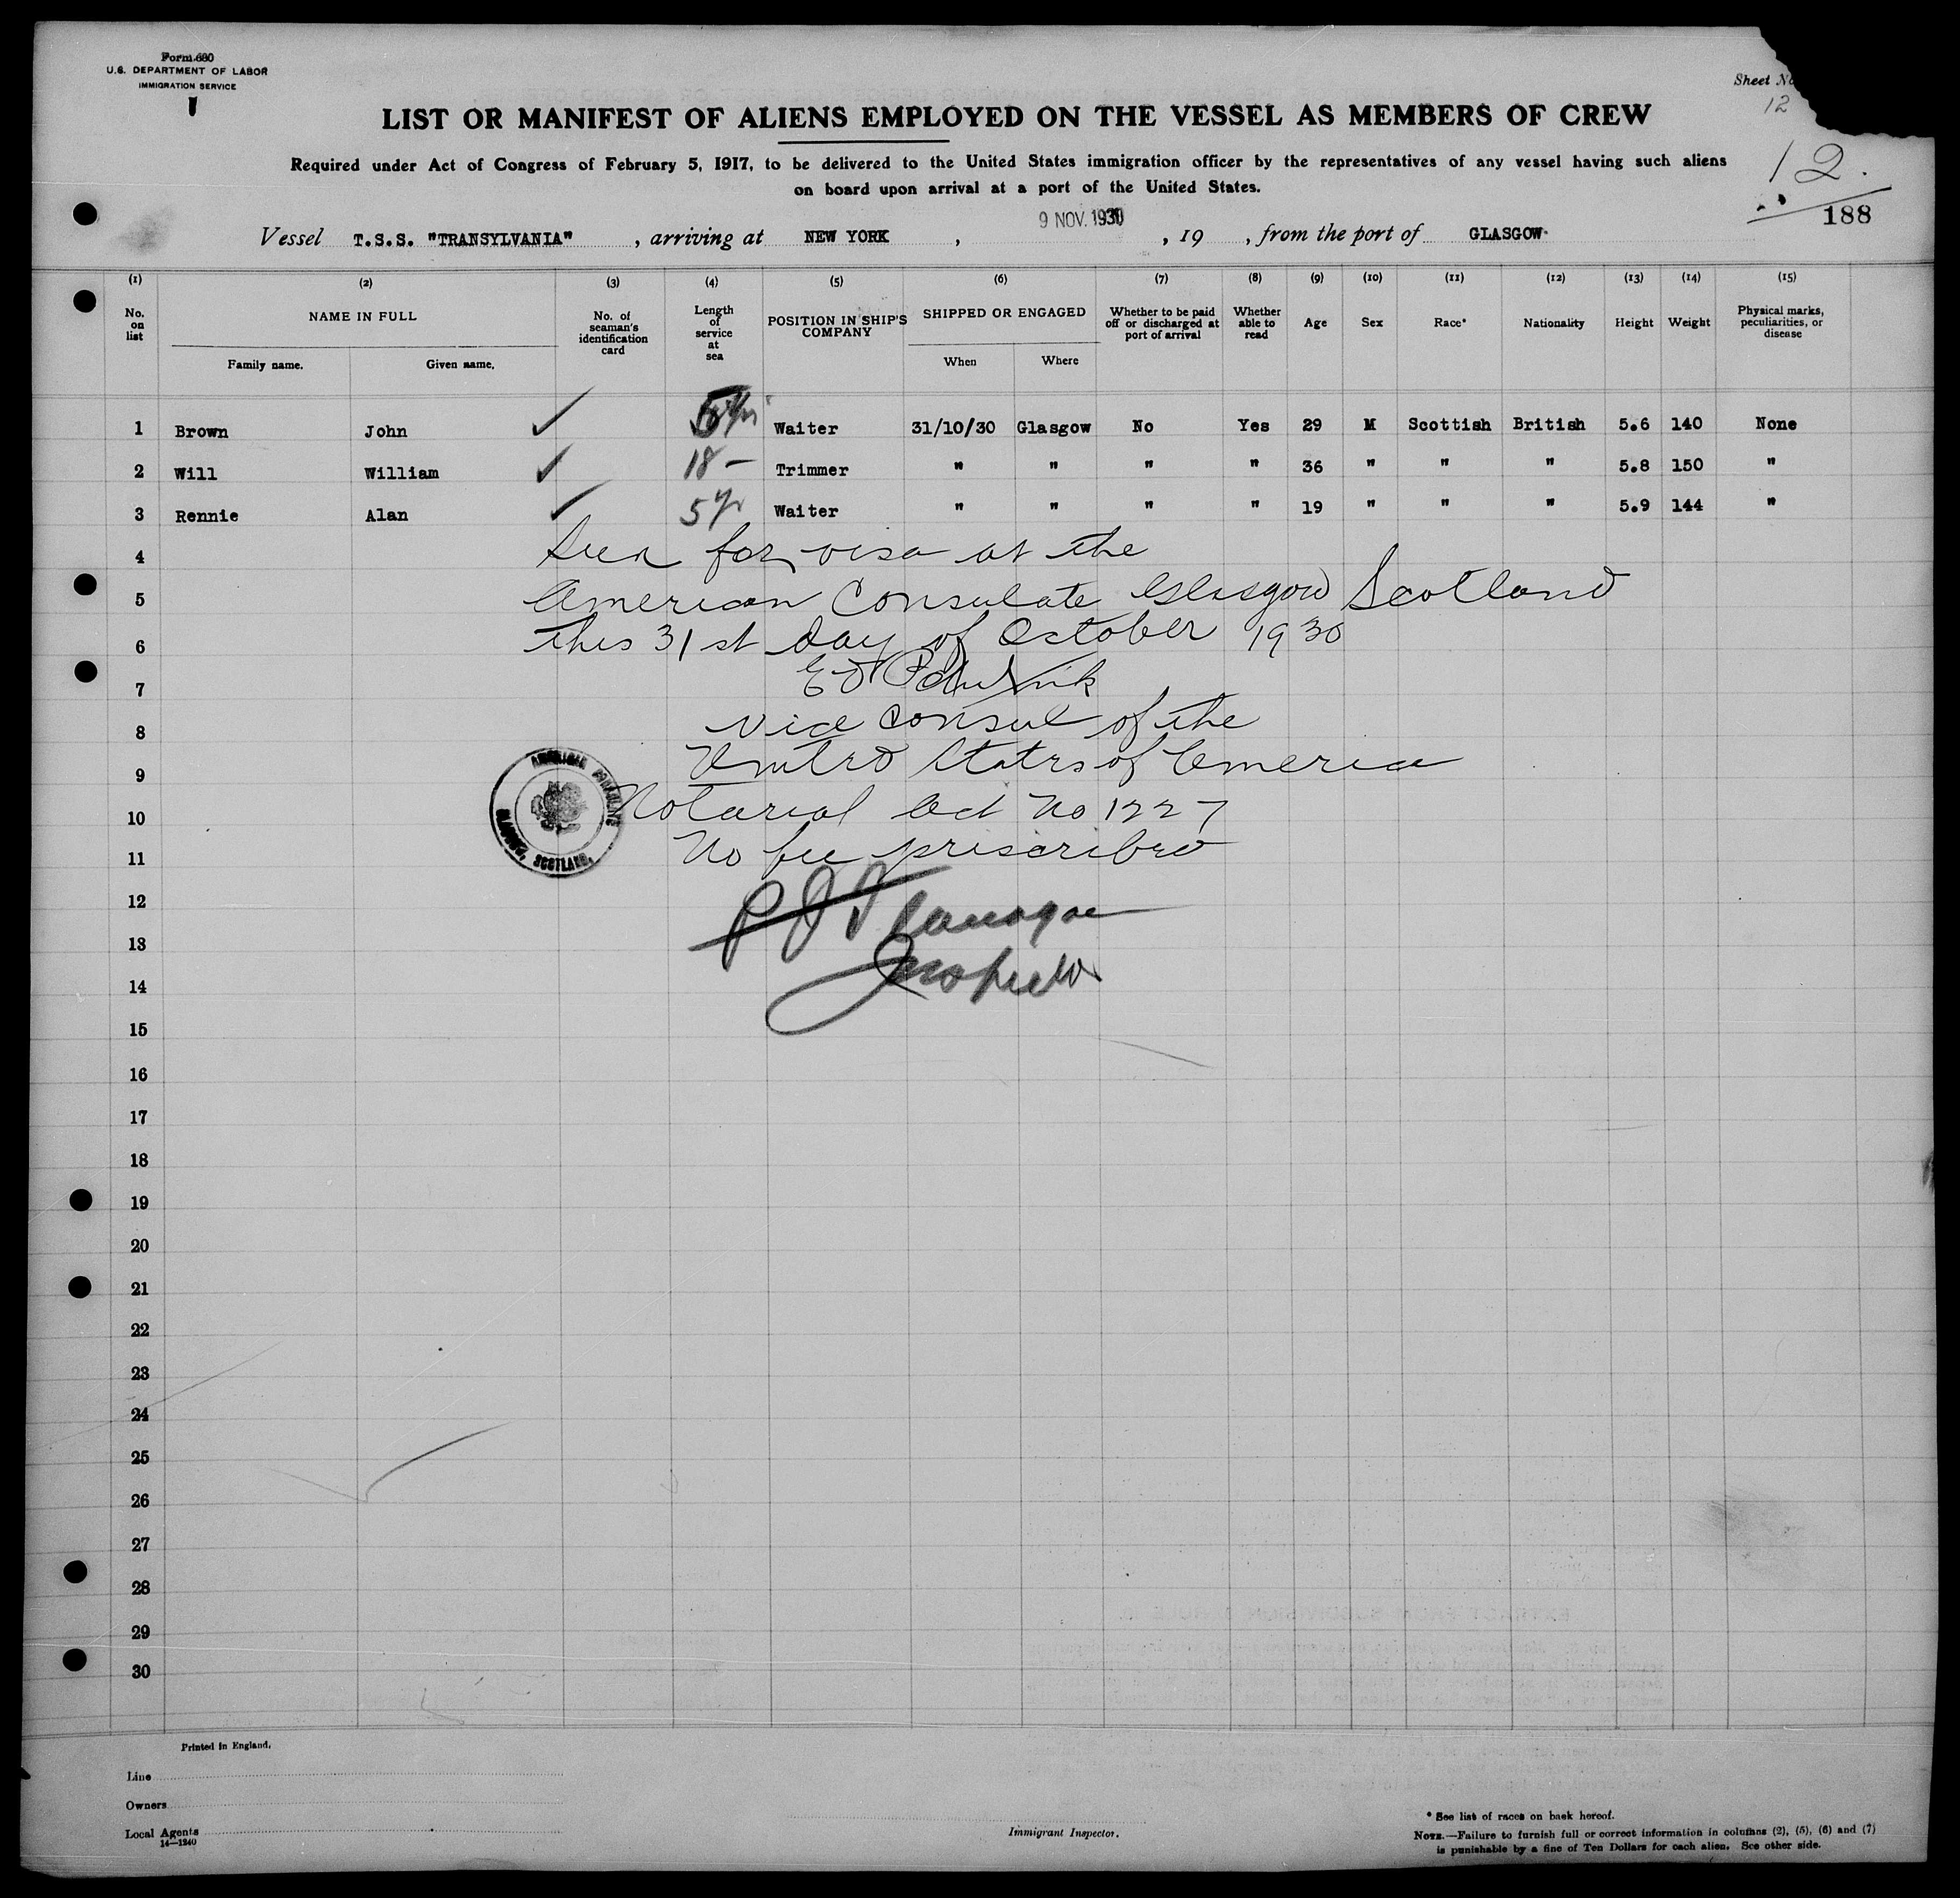 Form 680
U.S. DEPARTMENT OF LABOR
IMMIGRATION SERVICE
Sheet No
12
LIST OR MANIFEST OF ALIENS EMPLOYED ON THE VESSEL AS MEMBERS OF CREW
Required under Act of Congress of February 5, 1917, to be delivered to the United States immigration officer by the representatives of any vessel having such aliens
on board upon arrival at a port of the United States.
12.
188
Vessel T.S.S. "TRANSYLVANIA", arriving at NEW YORK, 9 NOV. 1930, 19 , from the port of GLASGOW
(1) (2) (3) (4) (5) (6) (7) (8) (9) (10) (11) (12) (13) (14) (15)
No. on list NAME IN FULL No. of seaman's identification card Length of service at sea POSITION IN SHIP'S COMPANY SHIPPED OR ENGAGED Whether to be paid off or discharged at port of arrival Whether able to read Age Sex Race* Nationality Height Weight Physical marks, peculiarities, or disease
Family name. Given name. When Where
1 Brown John ✓ Waiter 31/10/30 Glasgow No Yes 29 M Scottish British 5.6 140 None
2 Will William ✓ 18 — Trimmer " " " " 36 " " " 5.8 150 "
3 Rennie Alan ✓ 5 yr Waiter " " " " 19 " " " 5.9 144 "
4 Seen for visa at the
5 American Consulate Glasgow Scotland
6 this 31st day of October 1930
7
8 Vice Consul of the
9 United States of America
10 Notarial Act No 1227
11 No fee prescribed
AMERICAN CONSULATE
GLASGOW, SCOTLAND.
12
13
14
15
16
17
18
19
20
21
22
23
24
25
26
27
28
29
30
Printed in England.
Line
Owners
Local Agents
14—1240
Immigrant Inspector.
* See list of races on back hereof.
NOTE.—Failure to furnish full or correct information in columns (2), (5), (6) and (7)
is punishable by a fine of Ten Dollars for each alien. See other side.